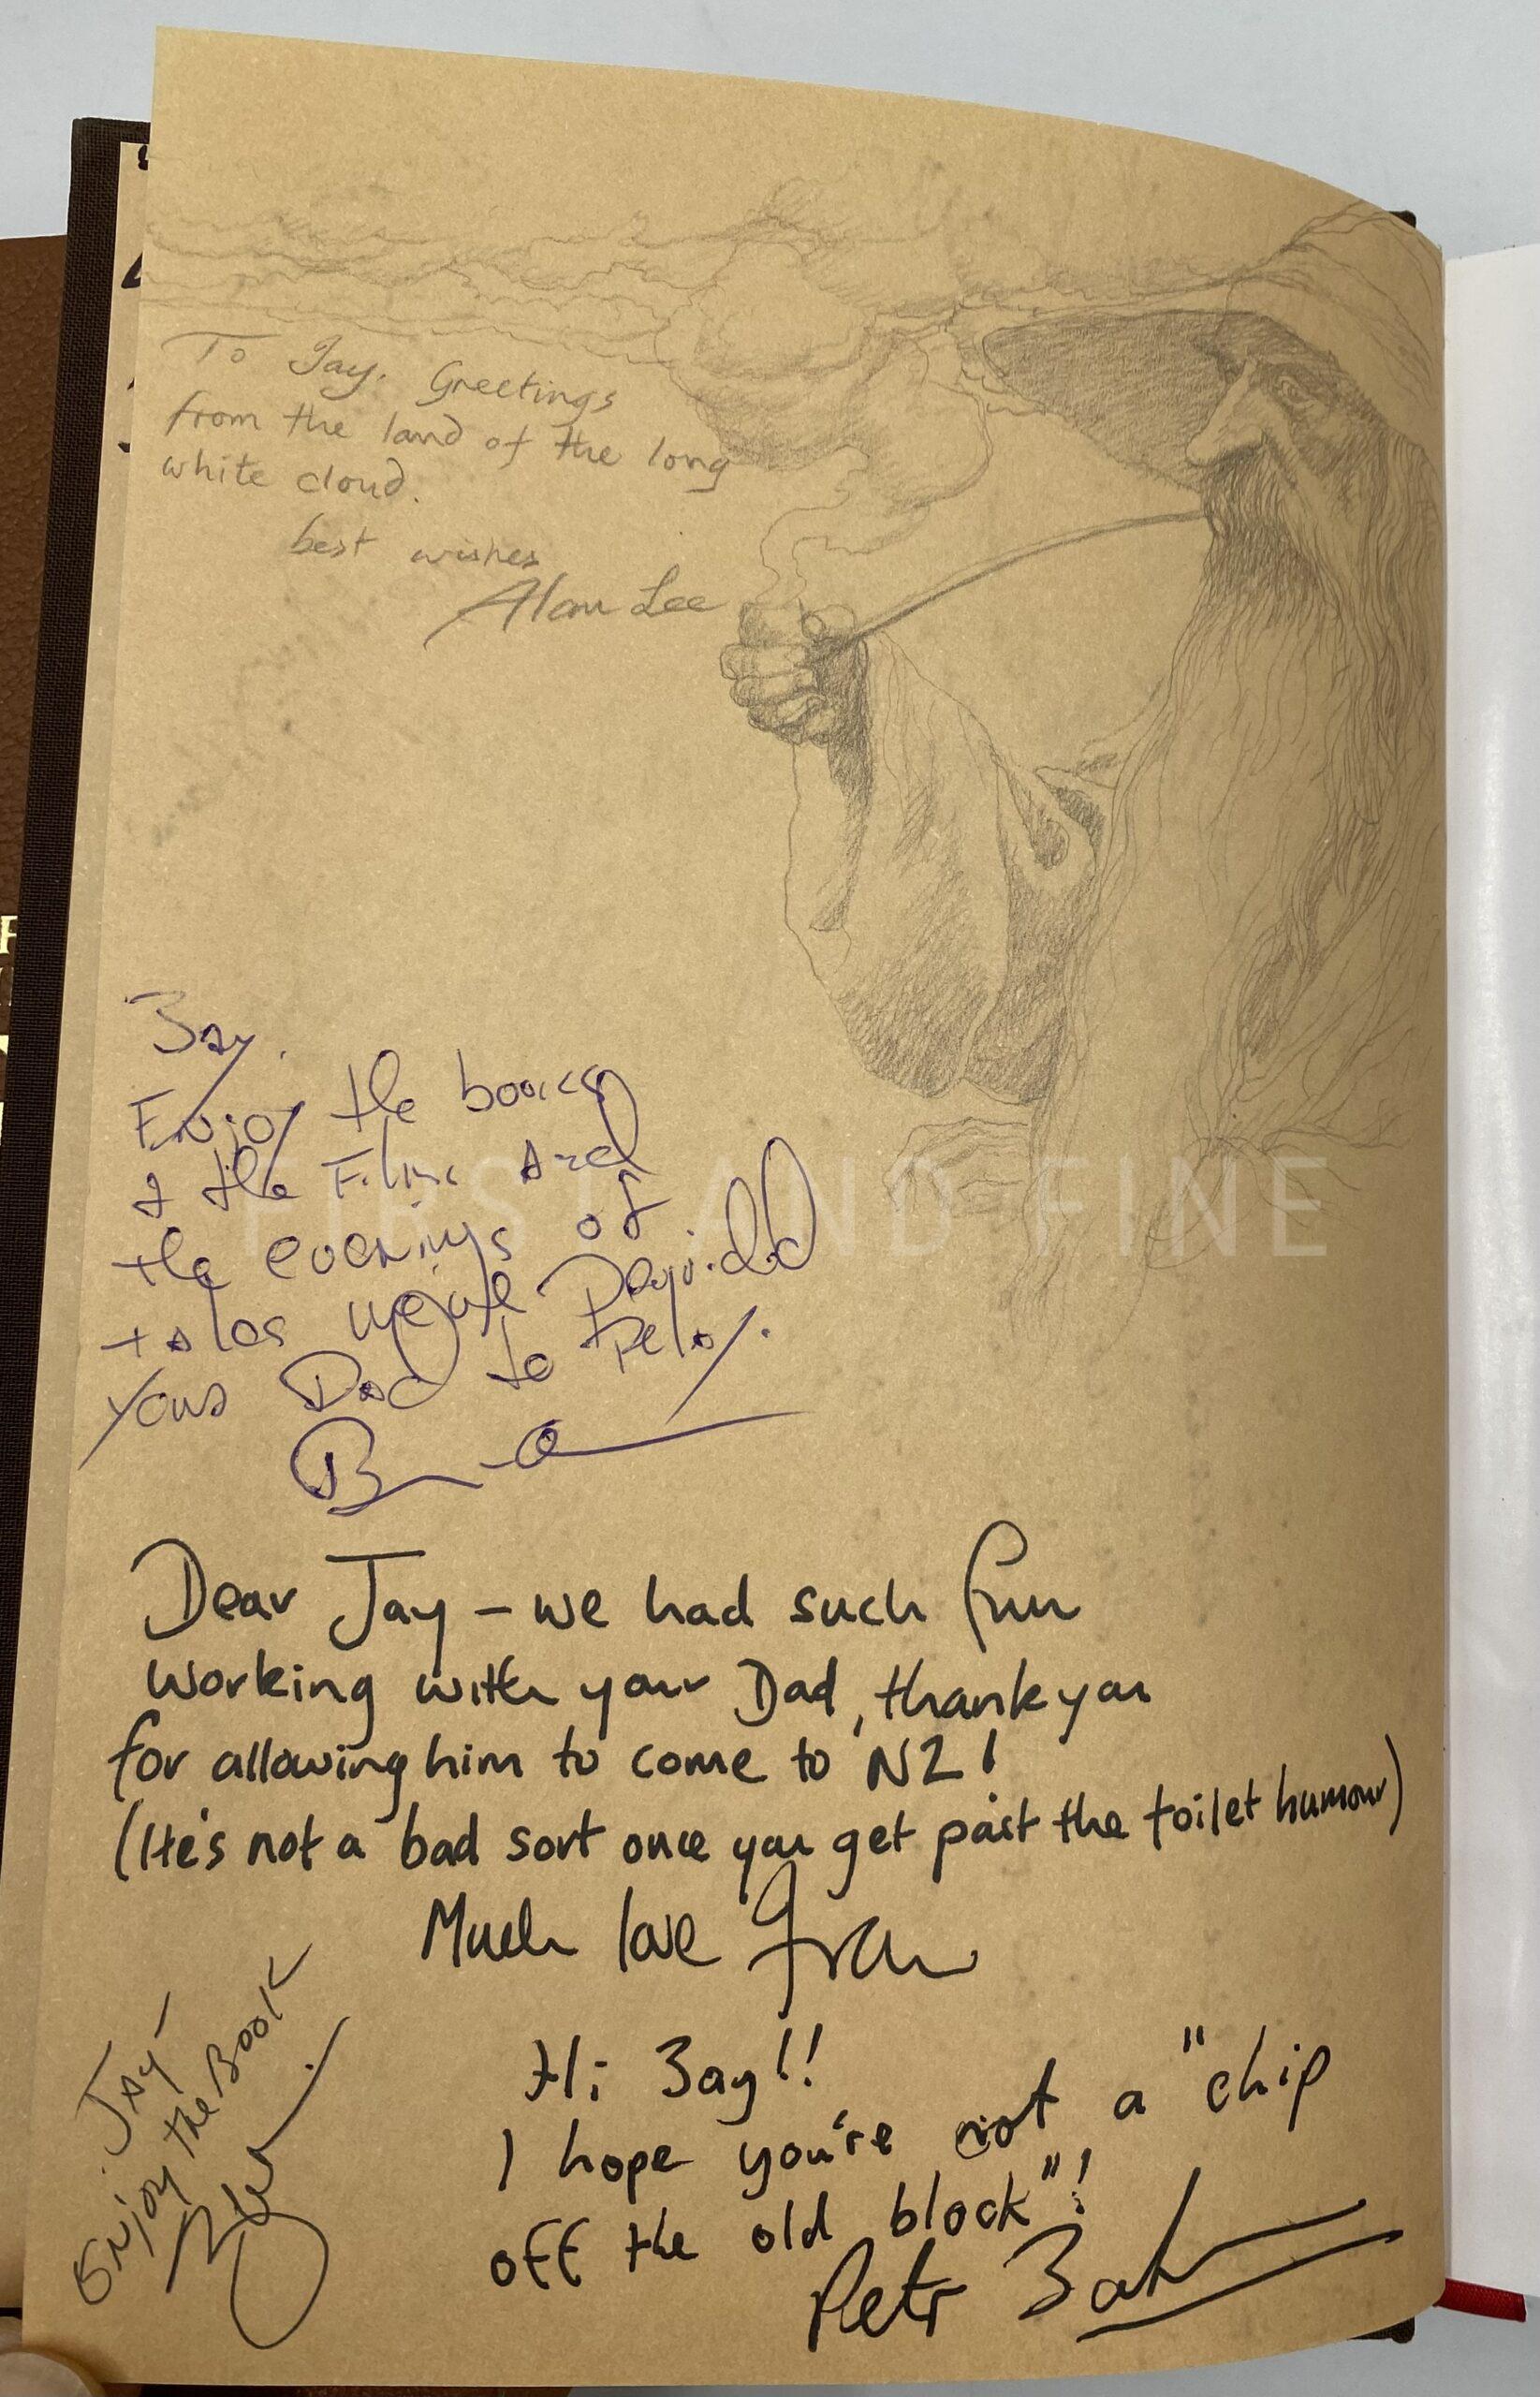 To Jay. Greetings
from the land of the long
white cloud.
best wishes
Alan Lee
Jay.
Enjoy the books
& the Films and
the evenings of
tales we've Dad
Your Dad to Relay.
Dear Jay – we had such fun
working with your Dad, thank you
for allowing him to come to NZ!
(He's not a bad sort once you get past the toilet humour)
Much love Fran
Jay –
Enjoy the Book
Hi Jay!!
I hope you're not a "chip
off the old block"!
Peter Jack
FIRST AND FINE